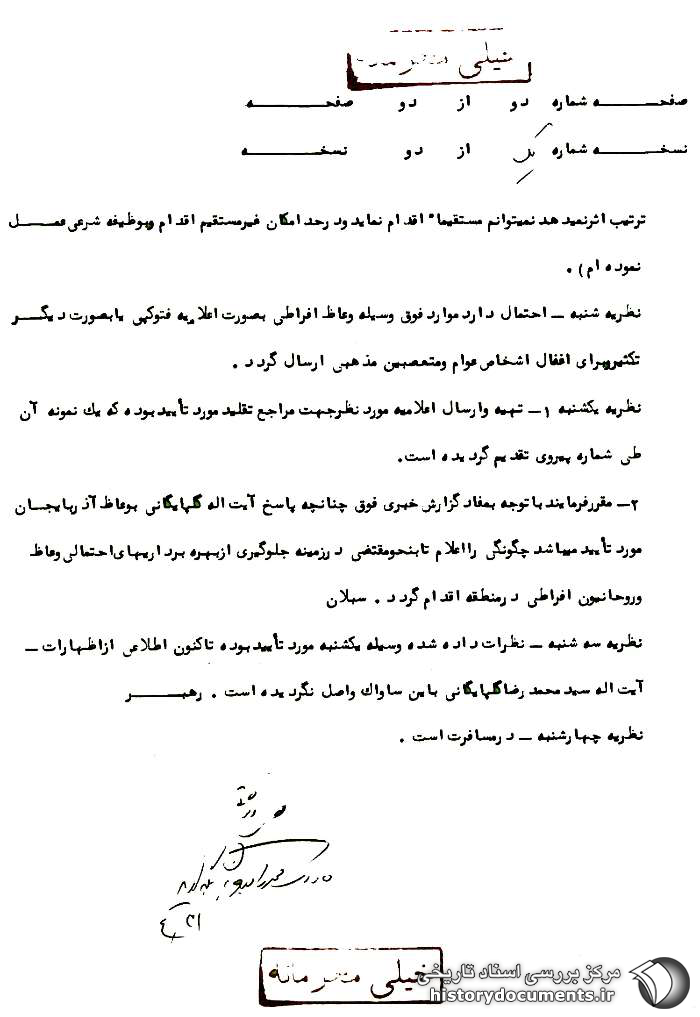 خیلی محرمانه
صفحـــــه شماره دو از دو صفحـــــه
نسخـــــه شماره یک از دو نسخـــــه
ترتیب اثر نمیدهد نمیتوانم مستقیما" اقدام نماید و در حد امکان غیرمستقیم اقدام و بوظیفه شرعی عمـــل
نموده ام) .
نظریه شنبه ــ احتمال دارد موارد فوق وسیله وعاظ افراطی بصورت اعلامیه فتوکپی یا بصورت دیگـــر
تکثیر و برای اغفال اشخاص عوام و متعصبین مذهبی ارسال گردد .
نظریه یکشنبه ۱ــ تهیه و ارسال اعلامیه مورد نظر جهت مراجع تقلید مورد تأیید بوده که یك نمونه آن
طی شماره پیروی تقدیم گردیده است.
۲ــ مقرر فرمایند با توجه بمفاد گزارش خبری فوق چنانچه پاسخ آیت اله گلپایگانی بوعاظ آذربایجان
مورد تأیید میباشد چگونگی را اعلام تا بنحو مقتضی در زمینه جلوگیری از بهره برداریهای احتمالی وعاظ
و روحانیون افراطی در منطقه اقدام گردد . سبلان
نظریه سه شنبه ــ نظرات داده شده وسیله یکشنبه مورد تأیید بوده تاکنون اطلاعی از اظهارات ــ
آیت اله سید محمد رضا گلپایگانی باین ساواك واصل نگردیده است . رهبـــــر
نظریه چهارشنبه ــ در مسافرت است .
خیلی محرمانه
مرکز بررسی اسناد تاریخی
historydocuments.ir